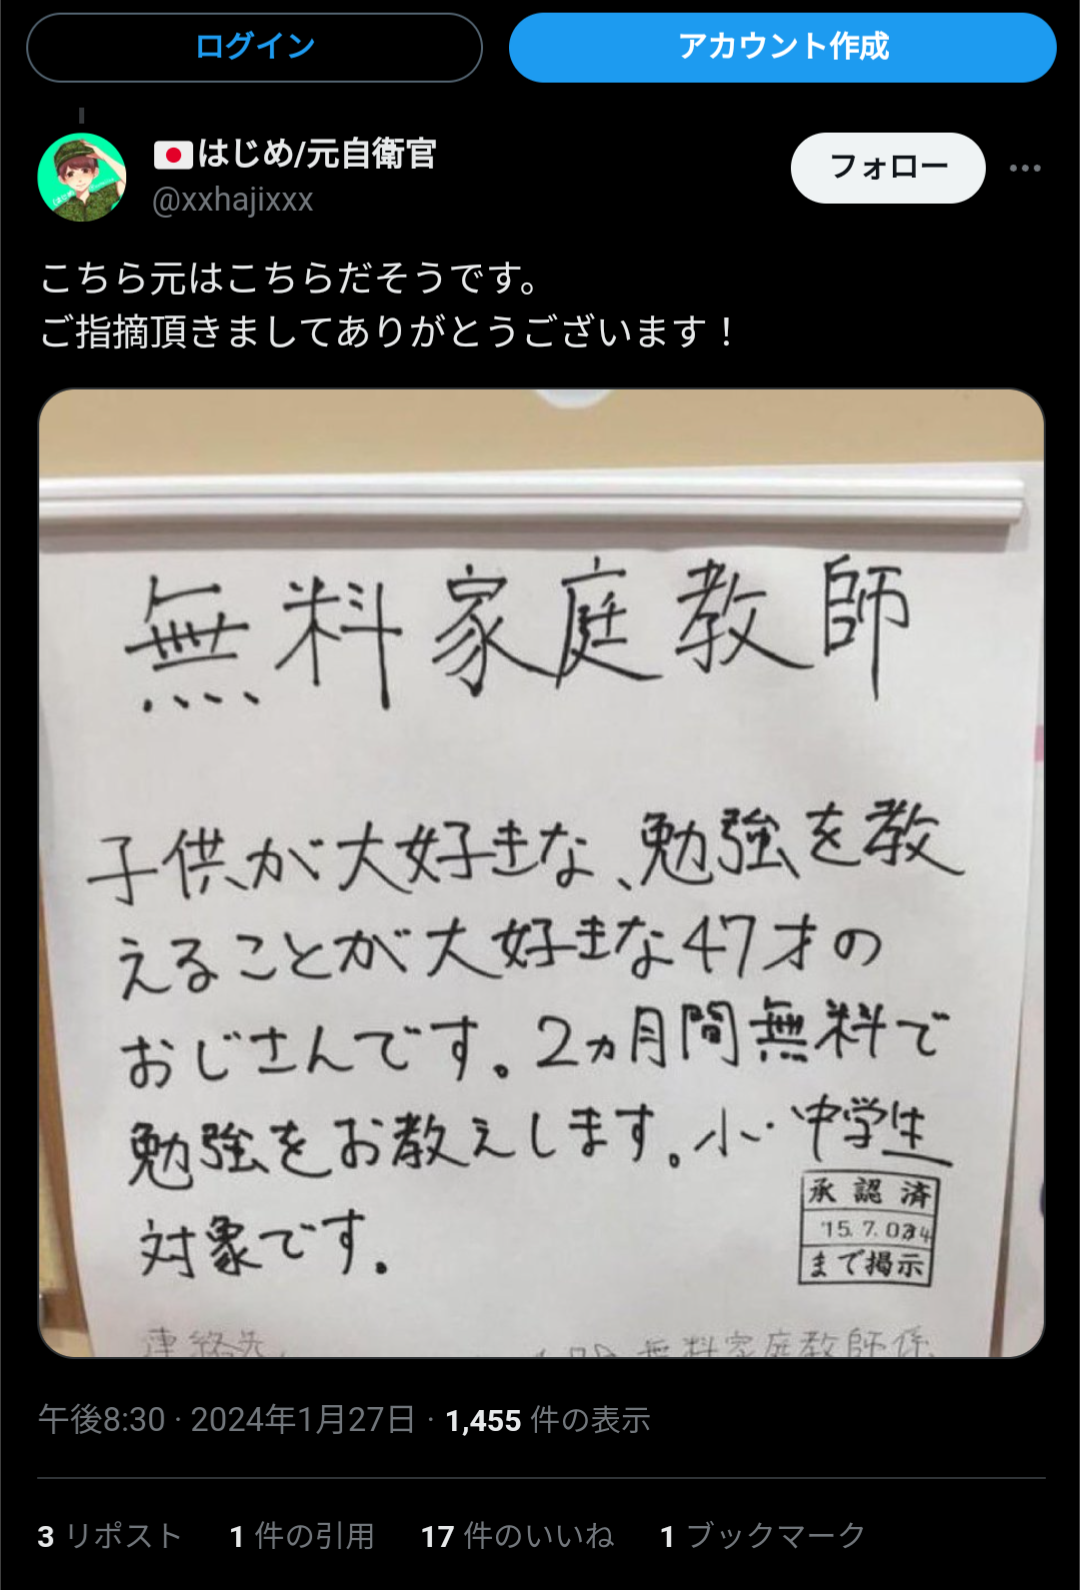 ログイン
アカウント作成
はじめ/元自衛官
@xxhajixxx
フォロー
こちら元はこちらだそうです。
ご指摘頂きましてありがとうございます！
無料家庭教師
子供が大好きな、勉強を教
えることが大好きな47才の
おじさんです。2ヵ月間無料で
勉強をお教えします。小・中学生
対象です。
承認済
'15.7.
まで掲示
連絡先
無料家庭教師係
午後8:30 · 2024年1月27日 · 1,455 件の表示
3 リポスト 1 件の引用 17 件のいいね 1 ブックマーク